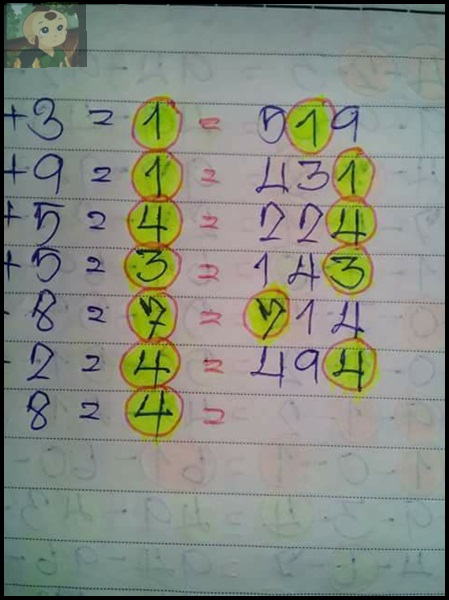 +3 = 1 = 519
+9 = 1 = 431
+5 = 4 = 224
+5 = 3 = 143
- 8 = 7 = 714
- 2 = 4 = 494
8 = 4 =